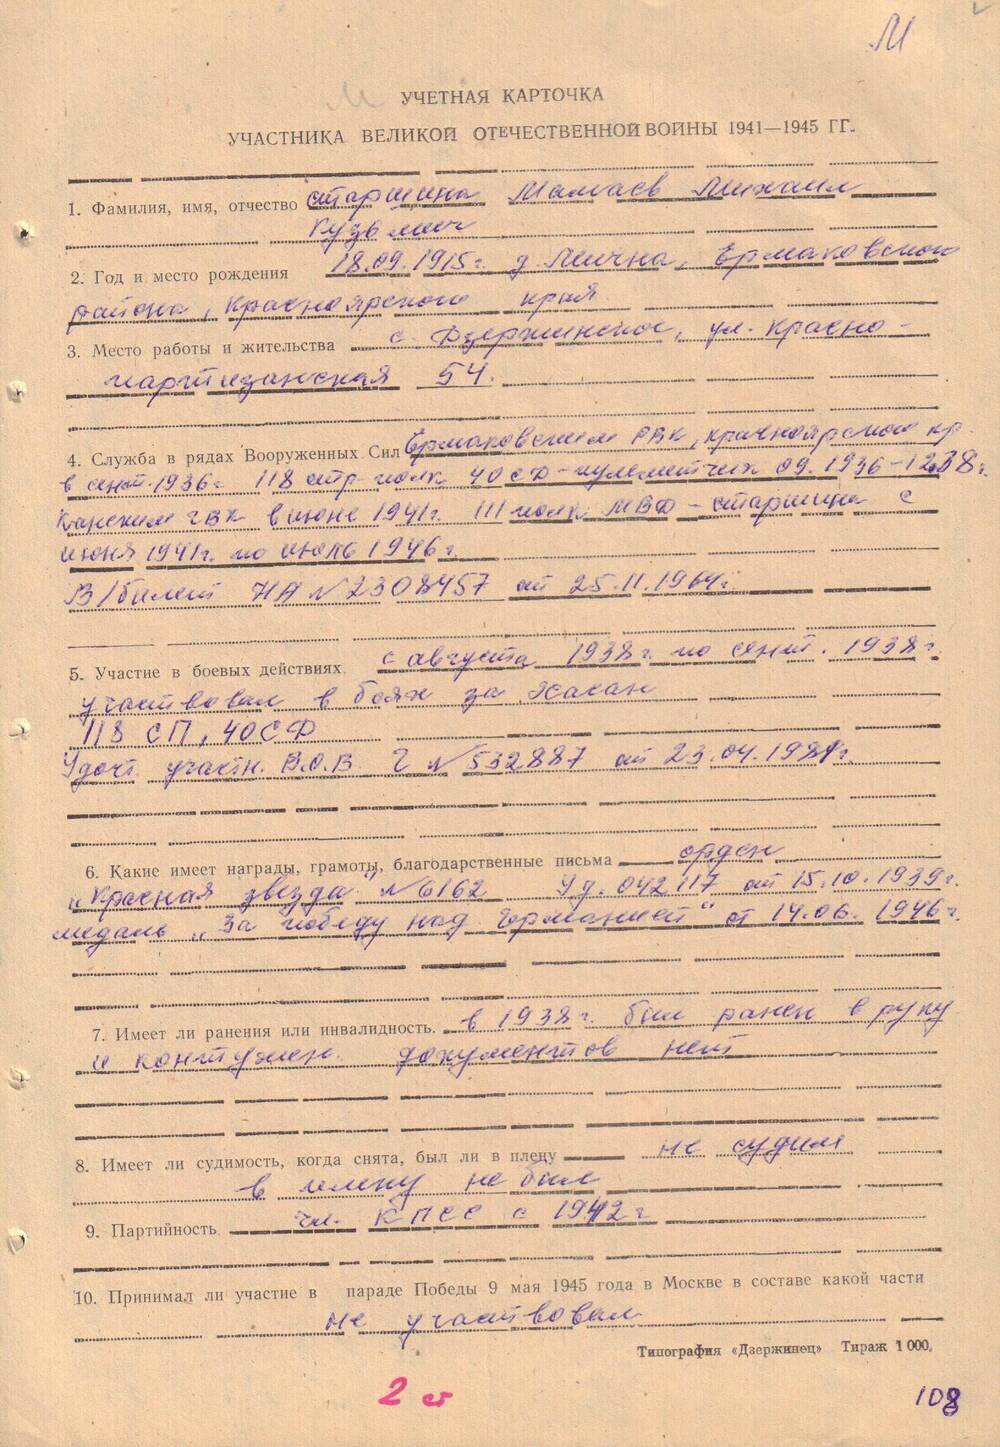 М
УЧЕТНАЯ КАРТОЧКА
УЧАСТНИКА ВЕЛИКОЙ ОТЕЧЕСТВЕННОЙ ВОЙНЫ 1941—1945 ГГ.
1. Фамилия, имя, отчество старшина Мамаев Михаил
Кузьмич
2. Год и место рождения 18.09.1915г. д. Мигна, Ермаковского
района, Красноярского края
3. Место работы и жительства с. Дзержинское, ул. Красно-
партизанская 54.
4. Служба в рядах Вооруженных Сил Ермаковским РВК, Красноярского кр.
в сент. 1936г. 118 стр. полк 40 СД - пулеметчик 09.1936-12.38г.
Канским ГВК в июне 1941г. III полк МВФ - старшина с
июня 1941г. по июль 1946г.
В/билет НА №2308457 от 25.11.1964г.
5. Участие в боевых действиях с августа 1938г. по сент. 1938г.
участвовал в боях за Хасан
118 СП, 40 СД
Удост. участн. В.О.В. Г №532887 от 23.04.1981г.
6. Какие имеет награды, грамоты, благодарственные письма орден
„Красная звезда" №6162 Уд. 042117 от 15.10.1939г.
медаль „За победу над Германией" от 14.06.1946г.
7. Имеет ли ранения или инвалидность. в 1938г. был ранен в руку
и контужен. документов нет
8. Имеет ли судимость, когда снята, был ли в плену не судим
в плену не был
9. Партийность чл. КПСС с 1942г
10. Принимал ли участие в параде Победы 9 мая 1945 года в Москве в составе какой части
не участвовал
Типография «Дзержинец» Тираж 1 000.
2 ст
108